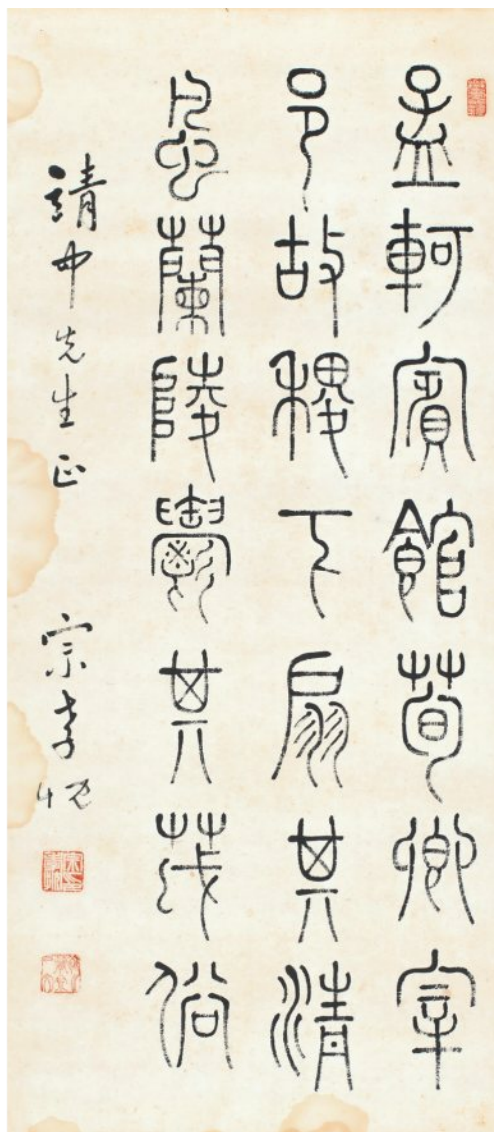 孟軻賓館荀卿宰
邑故稷下扇其清
風蘭陵鬱其茂俗
靖中先生正
宗孝忱